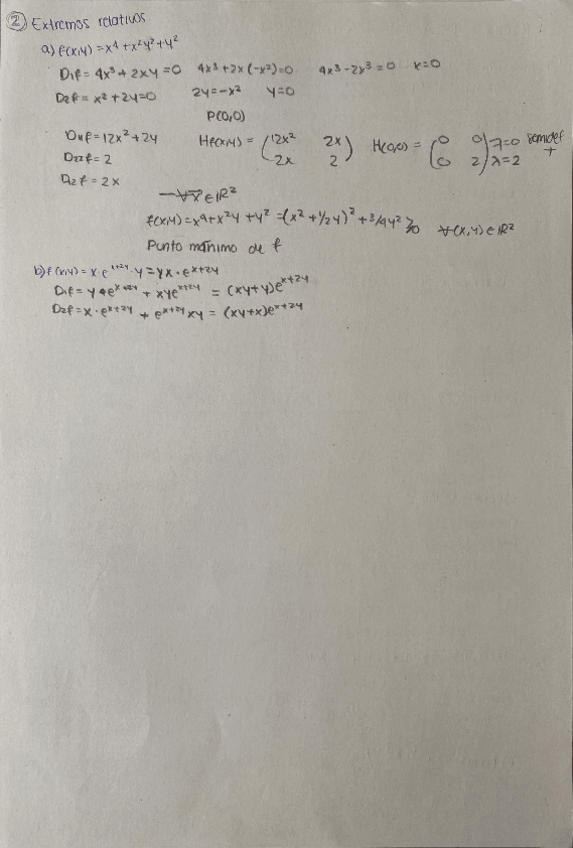 ② Extremos relativos
a) f(x,y) = x⁴ + x²y² + y²
D₁f = 4x³ + 2xy = 0   4x³ + 2x(-x²) = 0   4x³ - 2x³ = 0   x = 0
D₂f = x² + 2y = 0   2y = -x²   y = 0
P(0,0)
D₁₁f = 12x² + 2y   Hf(x,y) = (12x² 2x / 2x 2)   H(0,0) = (0 0 / 0 2) λ=0 λ=2 semidef +
D₂₂f = 2
D₁₂f = 2x
∀x̄ ∈ ℝ²
f(x,y) = x⁴ + x²y + y² = (x² + 1/2 y)² + 3/4 y² ≥ 0   ∀(x,y) ∈ ℝ²
Punto mínimo de f
b) f(x,y) = x · e^(x+2y) · y = yx · e^(x+2y)
D₁f = y · e^(x+2y) + xy e^(x+2y) = (xy+y) e^(x+2y)
D₂f = x · e^(x+2y) + e^(x+2y) xy = (xy+x) e^(x+2y)